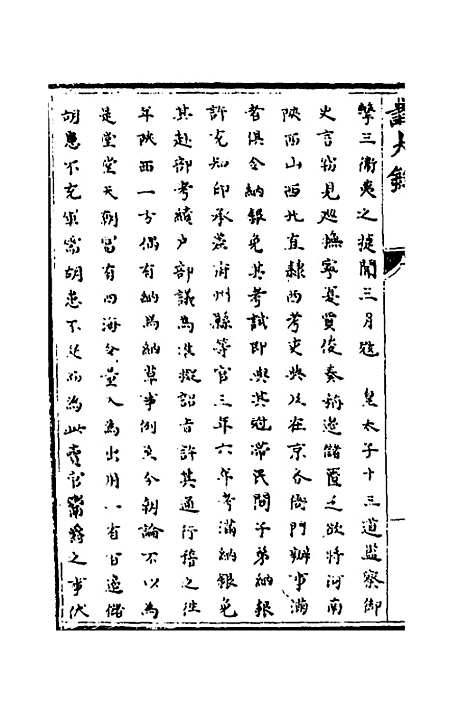 擊三衛夷之捷聞三月冠　皇太子十三道監察御
史言竊見巡撫寧夏賈俊奏稱邊儲匱乏欲將河南
陝西山西北直隸兩考吏典及在京各衙門辦事滿
者俱令納銀免其考試即與其冠帶民間子弟納銀
許充知印承差府州縣等官三年六年考滿納銀免
其赴部考績戶部議為准擬詔旨許其通行稽之往
年陝西一方偶有納馬納草事例矣今朝論不以為
是堂堂天朝富有四海今量入為出用一省百邊儲
胡患不充軍需胡患不足而為此賣官鬻爵之事伏